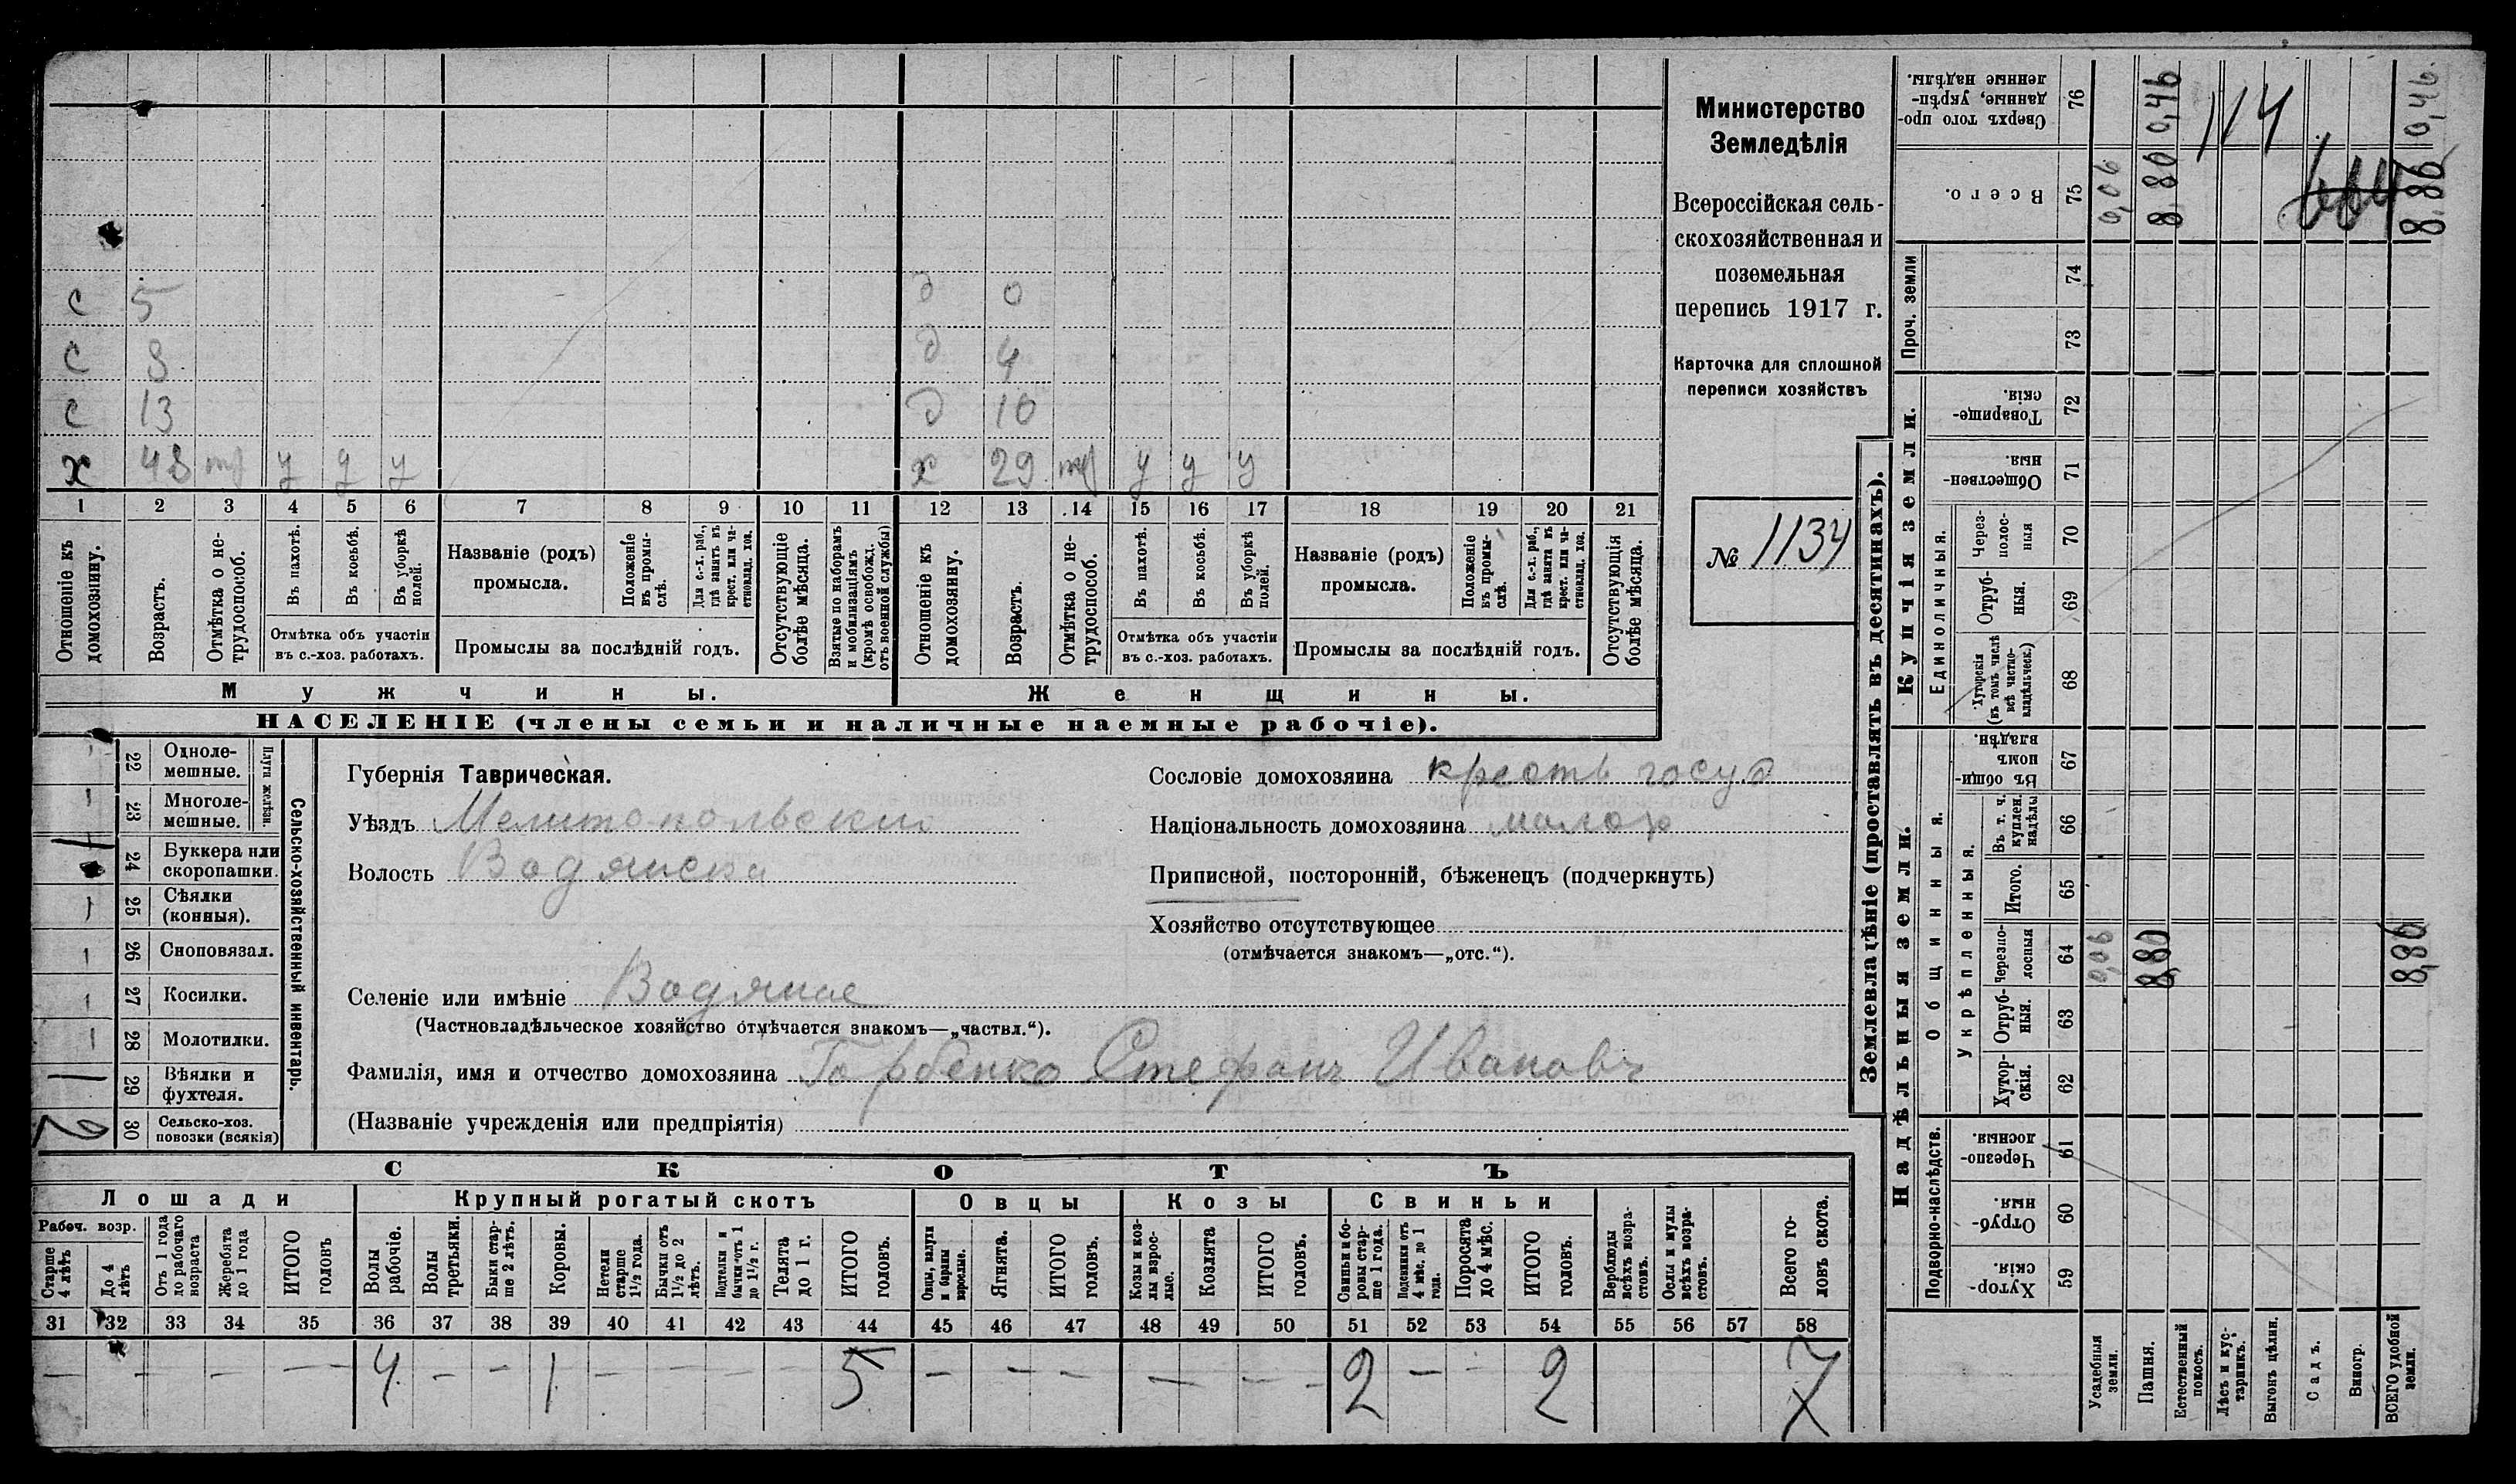 с 5 д 0
с 8 д 4
с 13 д 10
х 43 у у у х 29 у у у
1 2 3 4 5 6 7 8 9 10 11 12 13 14 15 16 17 18 19 20 21
Отношеніе къ домохозяину.
Возрастъ.
Отмѣтка о не-трудоспособ.
Въ пахотѣ.
Въ косьбѣ.
Въ уборкѣ полей.
Отмѣтка объ участіи
въ с.-хоз. работахъ.
Названіе (родъ)
промысла.
Положеніе въ промы-слѣ.
Для с.-х. раб., гдѣ занятъ въ крест. или ча-стновлад. хоз.
Промыслы за послѣдній годъ.
Отсутствующіе болѣе мѣсяца.
Взятые по наборамъ и мобилизаціямъ (кромѣ освобожд. отъ военной службы)
Отношеніе къ домохозяину.
Возрастъ.
Отмѣтка о не-трудоспособ.
Въ пахотѣ.
Въ косьбѣ.
Въ уборкѣ полей.
Отмѣтка объ участіи
въ с.-хоз. работахъ.
Названіе (родъ)
промысла.
Положеніе въ промы-слѣ.
Для с.-х. раб., гдѣ занята въ крест. или ча-стновлад. хоз.
Промыслы за послѣдній годъ.
Отсутствующія болѣе мѣсяца.
Мужчины.
Женщины.
НАСЕЛЕНІЕ (члены семьи и наличные наемные рабочіе).
Министерство
Земледѣлія
Всероссійская сель-
скохозяйственная и
поземельная
перепись 1917 г.
Карточка для сплошной
переписи хозяйствъ
№ 1134
Сельско-хозяйственный инвентарь.
Плуги желѣзн.
22 Одноле-
мешные.
23 Многоле-
мешные.
24 Буккера или
скоропашки.
25 Сѣялки
(конныя).
26 Сноповязал.
27 Косилки.
28 Молотилки.
29 Вѣялки и
фухтеля.
30 Сельско-хоз.
повозки (всякія)
Губернія Таврическая.
Уѣздъ Мелитопольскій
Волость Водянска
Селеніе или имѣніе Водяное
(Частновладѣльческое хозяйство отмѣчается знакомъ—„частвл.“).
Фамилія, имя и отчество домохозяина Горбенко Стефанъ Ивановъ
(Названіе учрежденія или предпріятія)
Сословіе домохозяина крест госуд
Національность домохозяина малор
Приписной, посторонній, бѣженецъ (подчеркнуть)
Хозяйство отсутствующее
(отмѣчается знакомъ—„отс.“).
СКОТЪ
Лошади
Крупный рогатый скотъ
Овцы
Козы
Свиньи
Рабоч. возр.
Старше 4 лѣтъ
До 4 лѣтъ
Отъ 1 года до рабочаго возраста
Жеребята до 1 года
ИТОГО головъ
Волы рабочіе.
Волы третьяки.
Быки стар-ше 2 лѣтъ.
Коровы.
Нетели старше 1½ года.
Бычки отъ 1½ до 2 лѣтъ.
Подтелки и бычки отъ 1 до 1½ г.
Телята до 1 г.
ИТОГО головъ.
Овцы, валухи и бараны взрослые.
Ягнята.
ИТОГО головъ.
Козы и коз-лы взрос-лые.
Козлята
ИТОГО головъ.
Свиньи и бо-ровы стар-ше 1 года.
Подсвинки отъ 4 мѣс. до 1 года.
Поросята до 4 мѣс.
ИТОГО головъ.
Верблюды всѣхъ возра-стовъ.
Ослы и мулы всѣхъ возра-стовъ.
Всего го-ловъ скота.
31 32 33 34 35 36 37 38 39 40 41 42 43 44 45 46 47 48 49 50 51 52 53 54 55 56 57 58
— — — — 4 — — 1 — — — — 5 — — — — — — 2 — — 2 7
Землевладѣніе (проставлять въ десятинахъ).
Надѣльныя земли.
Купчія земли.
Проч. земли
Подворно-наслѣдств.
Общинныя.
Укрѣпленныя.
Единоличныя.
Хутор-скія. 59
Отруб-ныя. 60
Черезпо-лосныя. 61
Хутор-скія. 62
Отруб-ныя. 63
Черезпо-лосныя 64
Итого. 65
Въ т. ч. куплен. надѣлы 66
Въ общин-номъ владѣн. 67
Хуторскія (въ томъ числѣ всѣ частно-владѣльческ.) 68
Отруб-ныя. 69
Через-полос-ныя 70
Обществен-ныя. 71
Товарище-скія. 72
73
74
Всего. 75
Сверхъ того про-данные, укрѣп-ленные надѣлы. 76
Усадебныя земли. 0,06 0,06
Пашня. 8,80 8.80 0,46
Естественный покосъ.
Лѣсъ и кус-тарникъ.
Выгонъ цѣлин.
Садъ.
Виногр.
ВСЕГО удобной земли. 8,86 8.86 0,46.
114